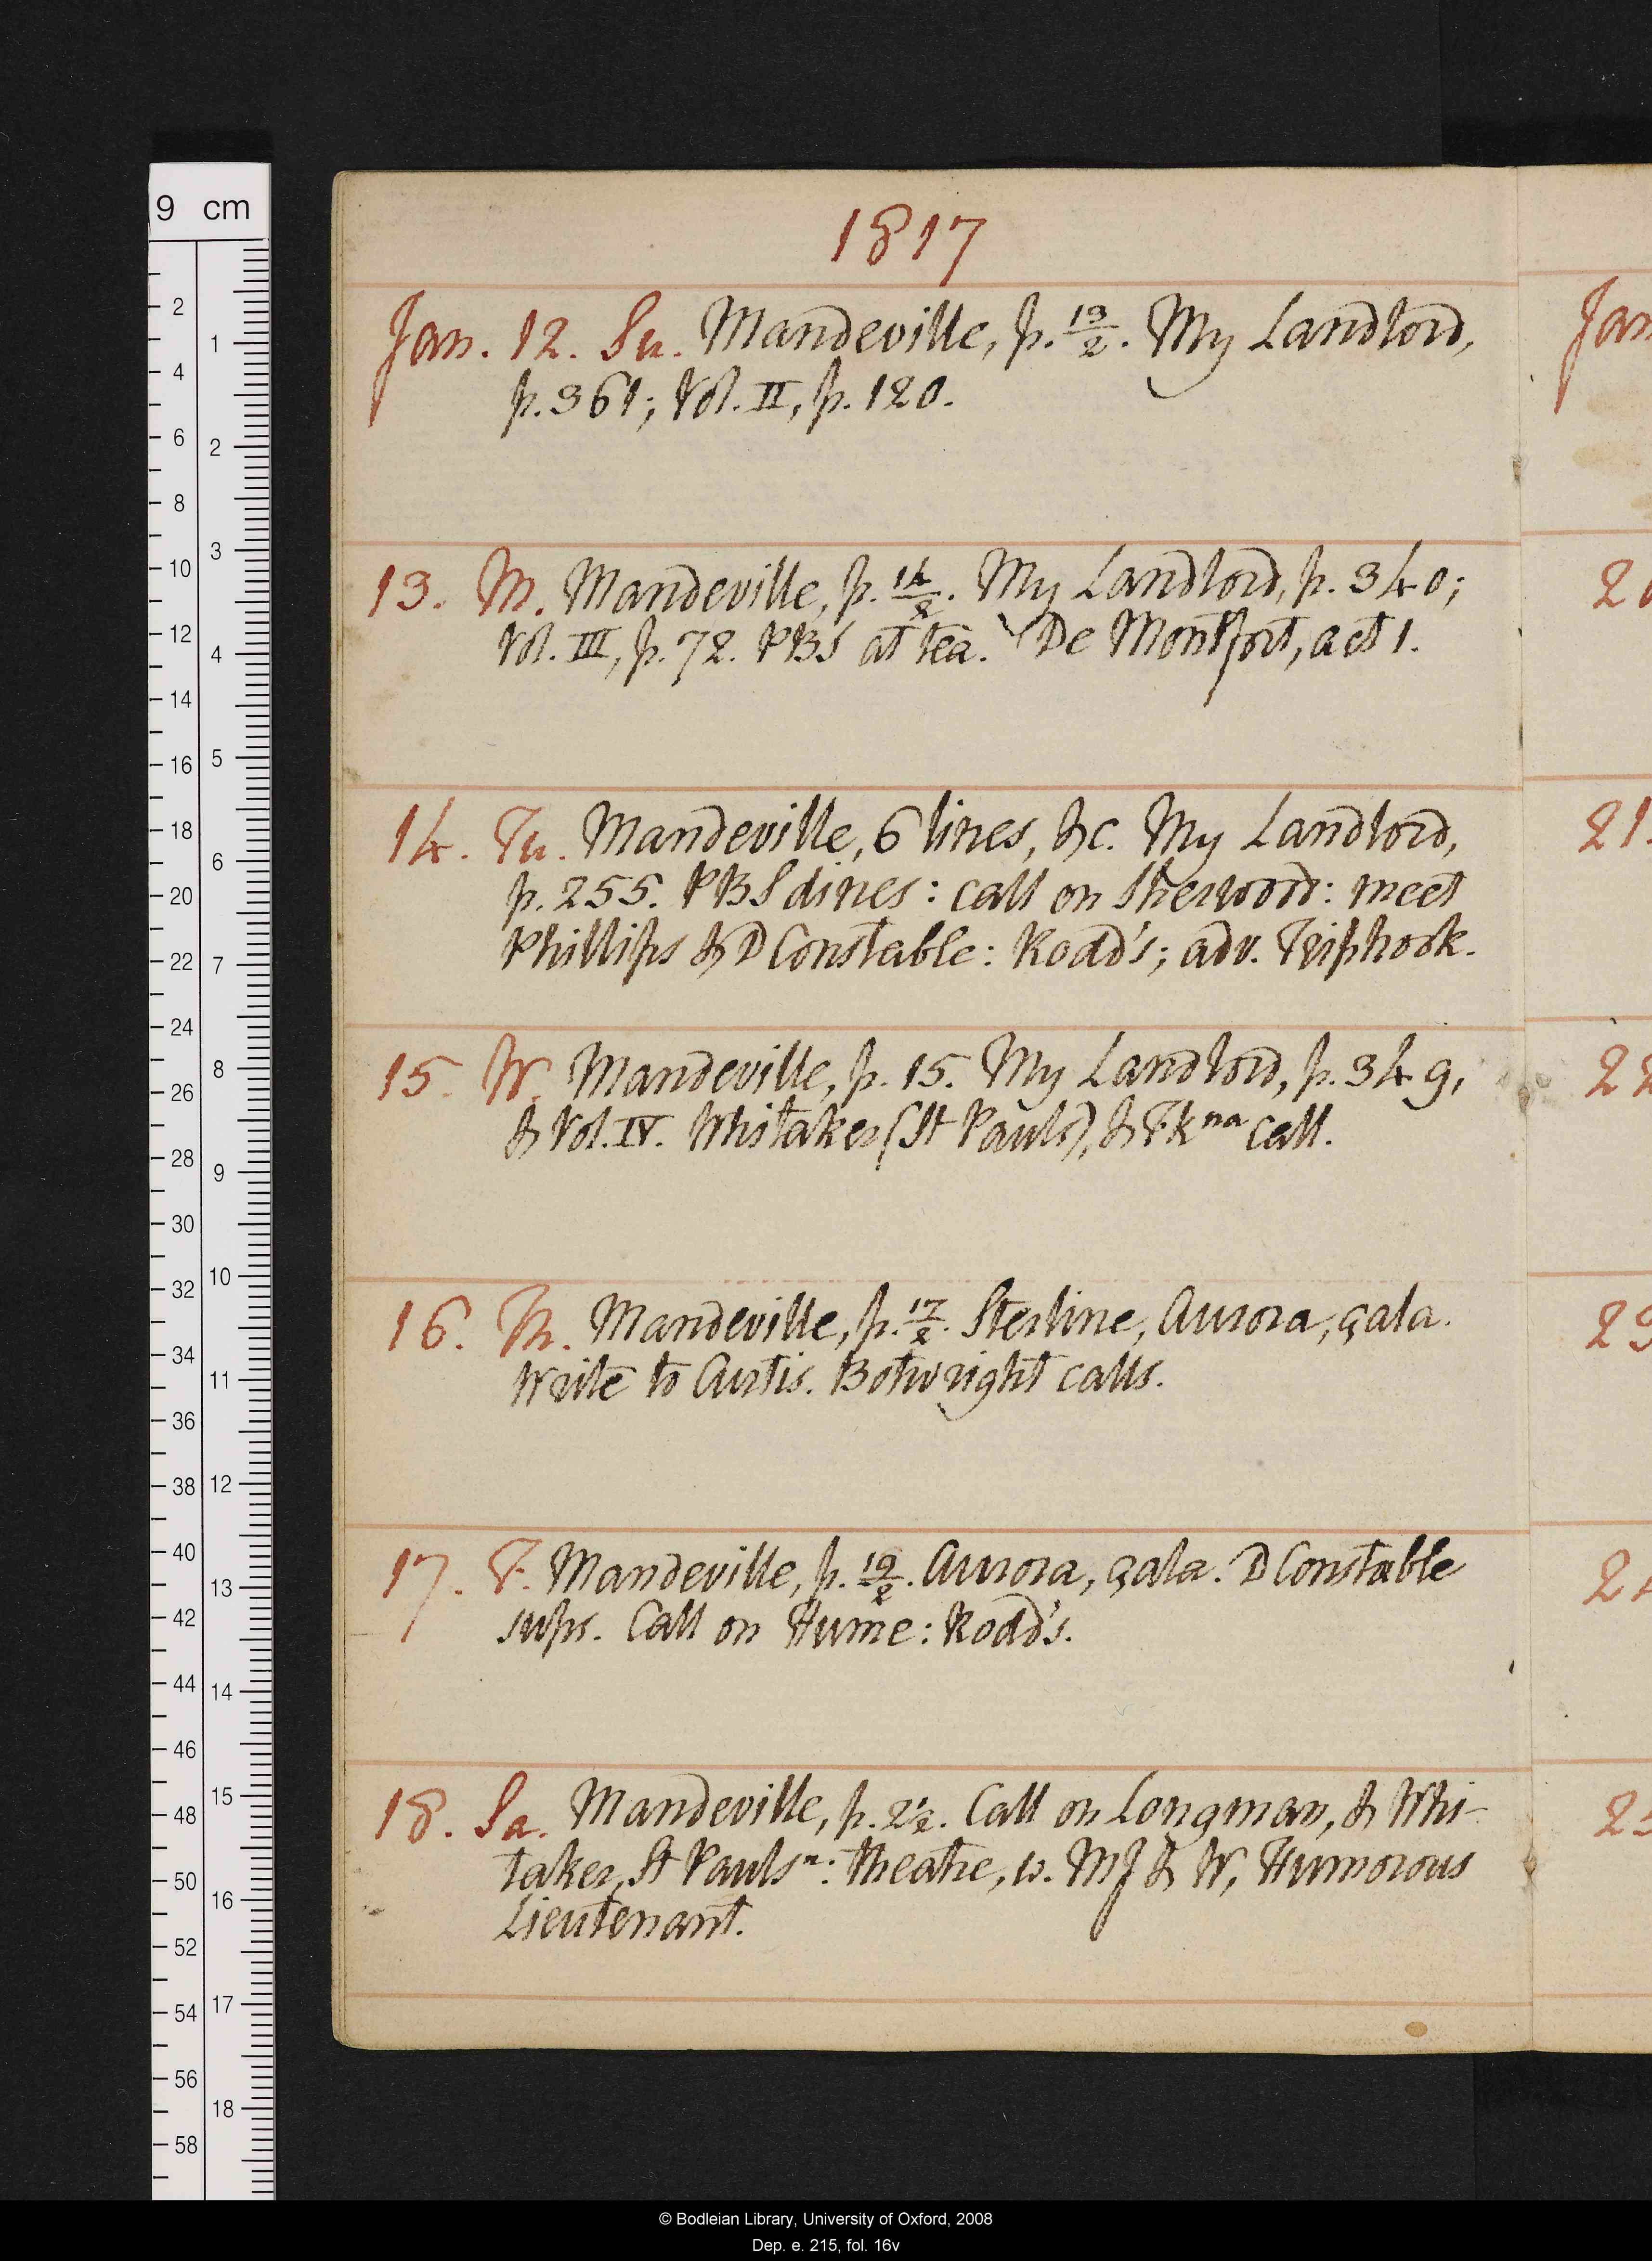 9 cm
1817
Jan. 12. Su. Mandeville, p. 13/2. My Landlord,
p. 361; Vol. II, p. 120.
13. M. Mandeville, p. 14/2. My Landlord, p. 340;
Vol. III, p. 72. PBS at tea. De Montfort, act 1.
14. Tu. Mandeville, 6 lines, &c. My Landlord,
p. 255. PBS dines: call on Sherwood: meet
Phillips & D Constable: Rodd's; adv. Triphook.
15. W. Mandeville, p. 15. My Landlord, p. 349,
& Vol. IV. Whitaker (St Pauls), & Fkna call.
16. Th. Mandeville, p. 17/2. Sterline, Aurora, çala.
Write to Curtis. Botwright calls.
17. F. Mandeville, p. 19/2. Aurora, çala. D Constable
sups. Call on Hume: Rodd's.
18. Sa. Mandeville, p. Call on Longman, & Whi-
taker, St Pauls n: theatre, w. MJ & W, Humorous
Lieutenant.
Jan
21.
© Bodleian Library, University of Oxford, 2008
Dep. e. 215, fol. 16v